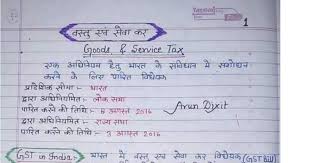 1
वस्तु एवं सेवा कर
Goods & Service Tax
एक अधिनियम हेतु भारत के संविधान में संशोधन
करने के लिए पारित विधेयक
प्रादेशिक सीमा :- भारत
द्वारा अधिनियमित :- लोक सभा
पारित करने की तिथि :- 8 अगस्त 2016
Arun Dixit
द्वारा अधिनियमित :- राज्य सभा
पारित करने की तिथि :- 3 अगस्त 2016
GST in India :- भारत में वस्तु एवं सेवा कर विधेयक (GST Bill)